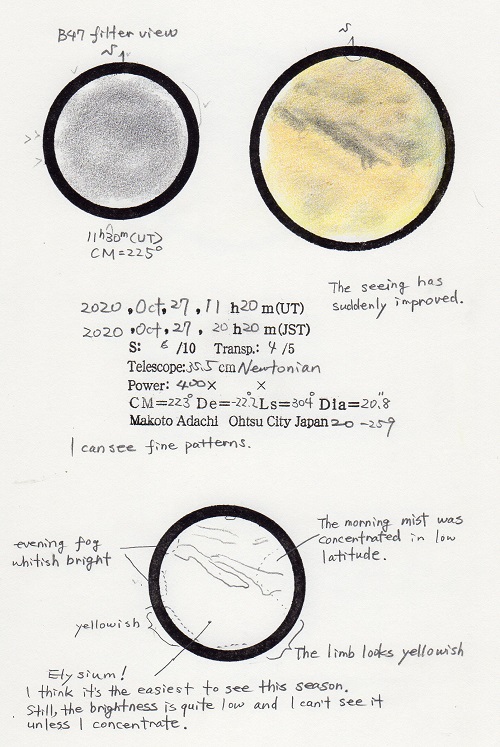 B47 filter view
S
S
11h30m(UT)
CM=225°
The seeing has
suddenly improved.
2020, Oct, 27, 11 h20 m(UT)
2020, Oct, 27, 20 h20 m(JST)
S: 6 /10 Transp.: 4 /5
Telescope:35.5cm Newtonian
Power: 400× ×
CM=223° De=-22.2 Ls=304° Dia=20.8"
Makoto Adachi Ohtsu City Japan 20 -259
I can see fine patterns.
evening fog
whitish bright
The morning mist was
concentrated in low
latitude.
yellowish
The limb looks yellowish
Elysium!
I think it's the easiest to see this season.
Still, the brightness is quite low and I can't see it
unless I concentrate.